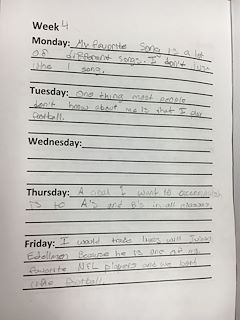 Week 4
Monday: My favorite Song is a lot
of different songs. I don't just
like 1 song.
Tuesday: one thing most people
don't know about me is that I play
football.
Wednesday:
Thursday: A goal I want to accomplish
is to A's and B's in all classes
Friday: I would trade lives will
Edelman Because he is one of my
favorite NFL players and we both
like football